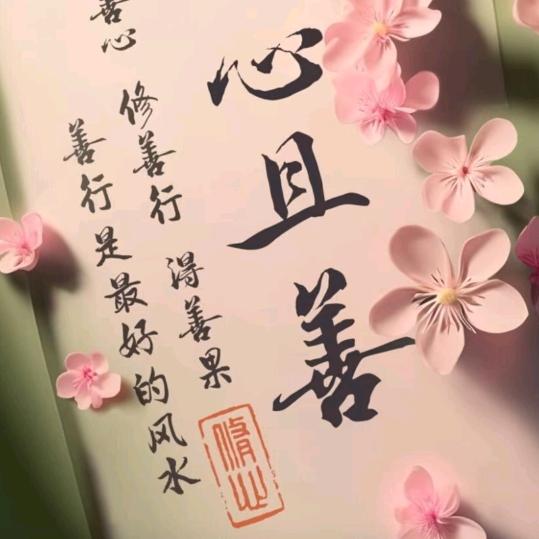 心且善
善心 修善行 得善果
善行是最好的风水